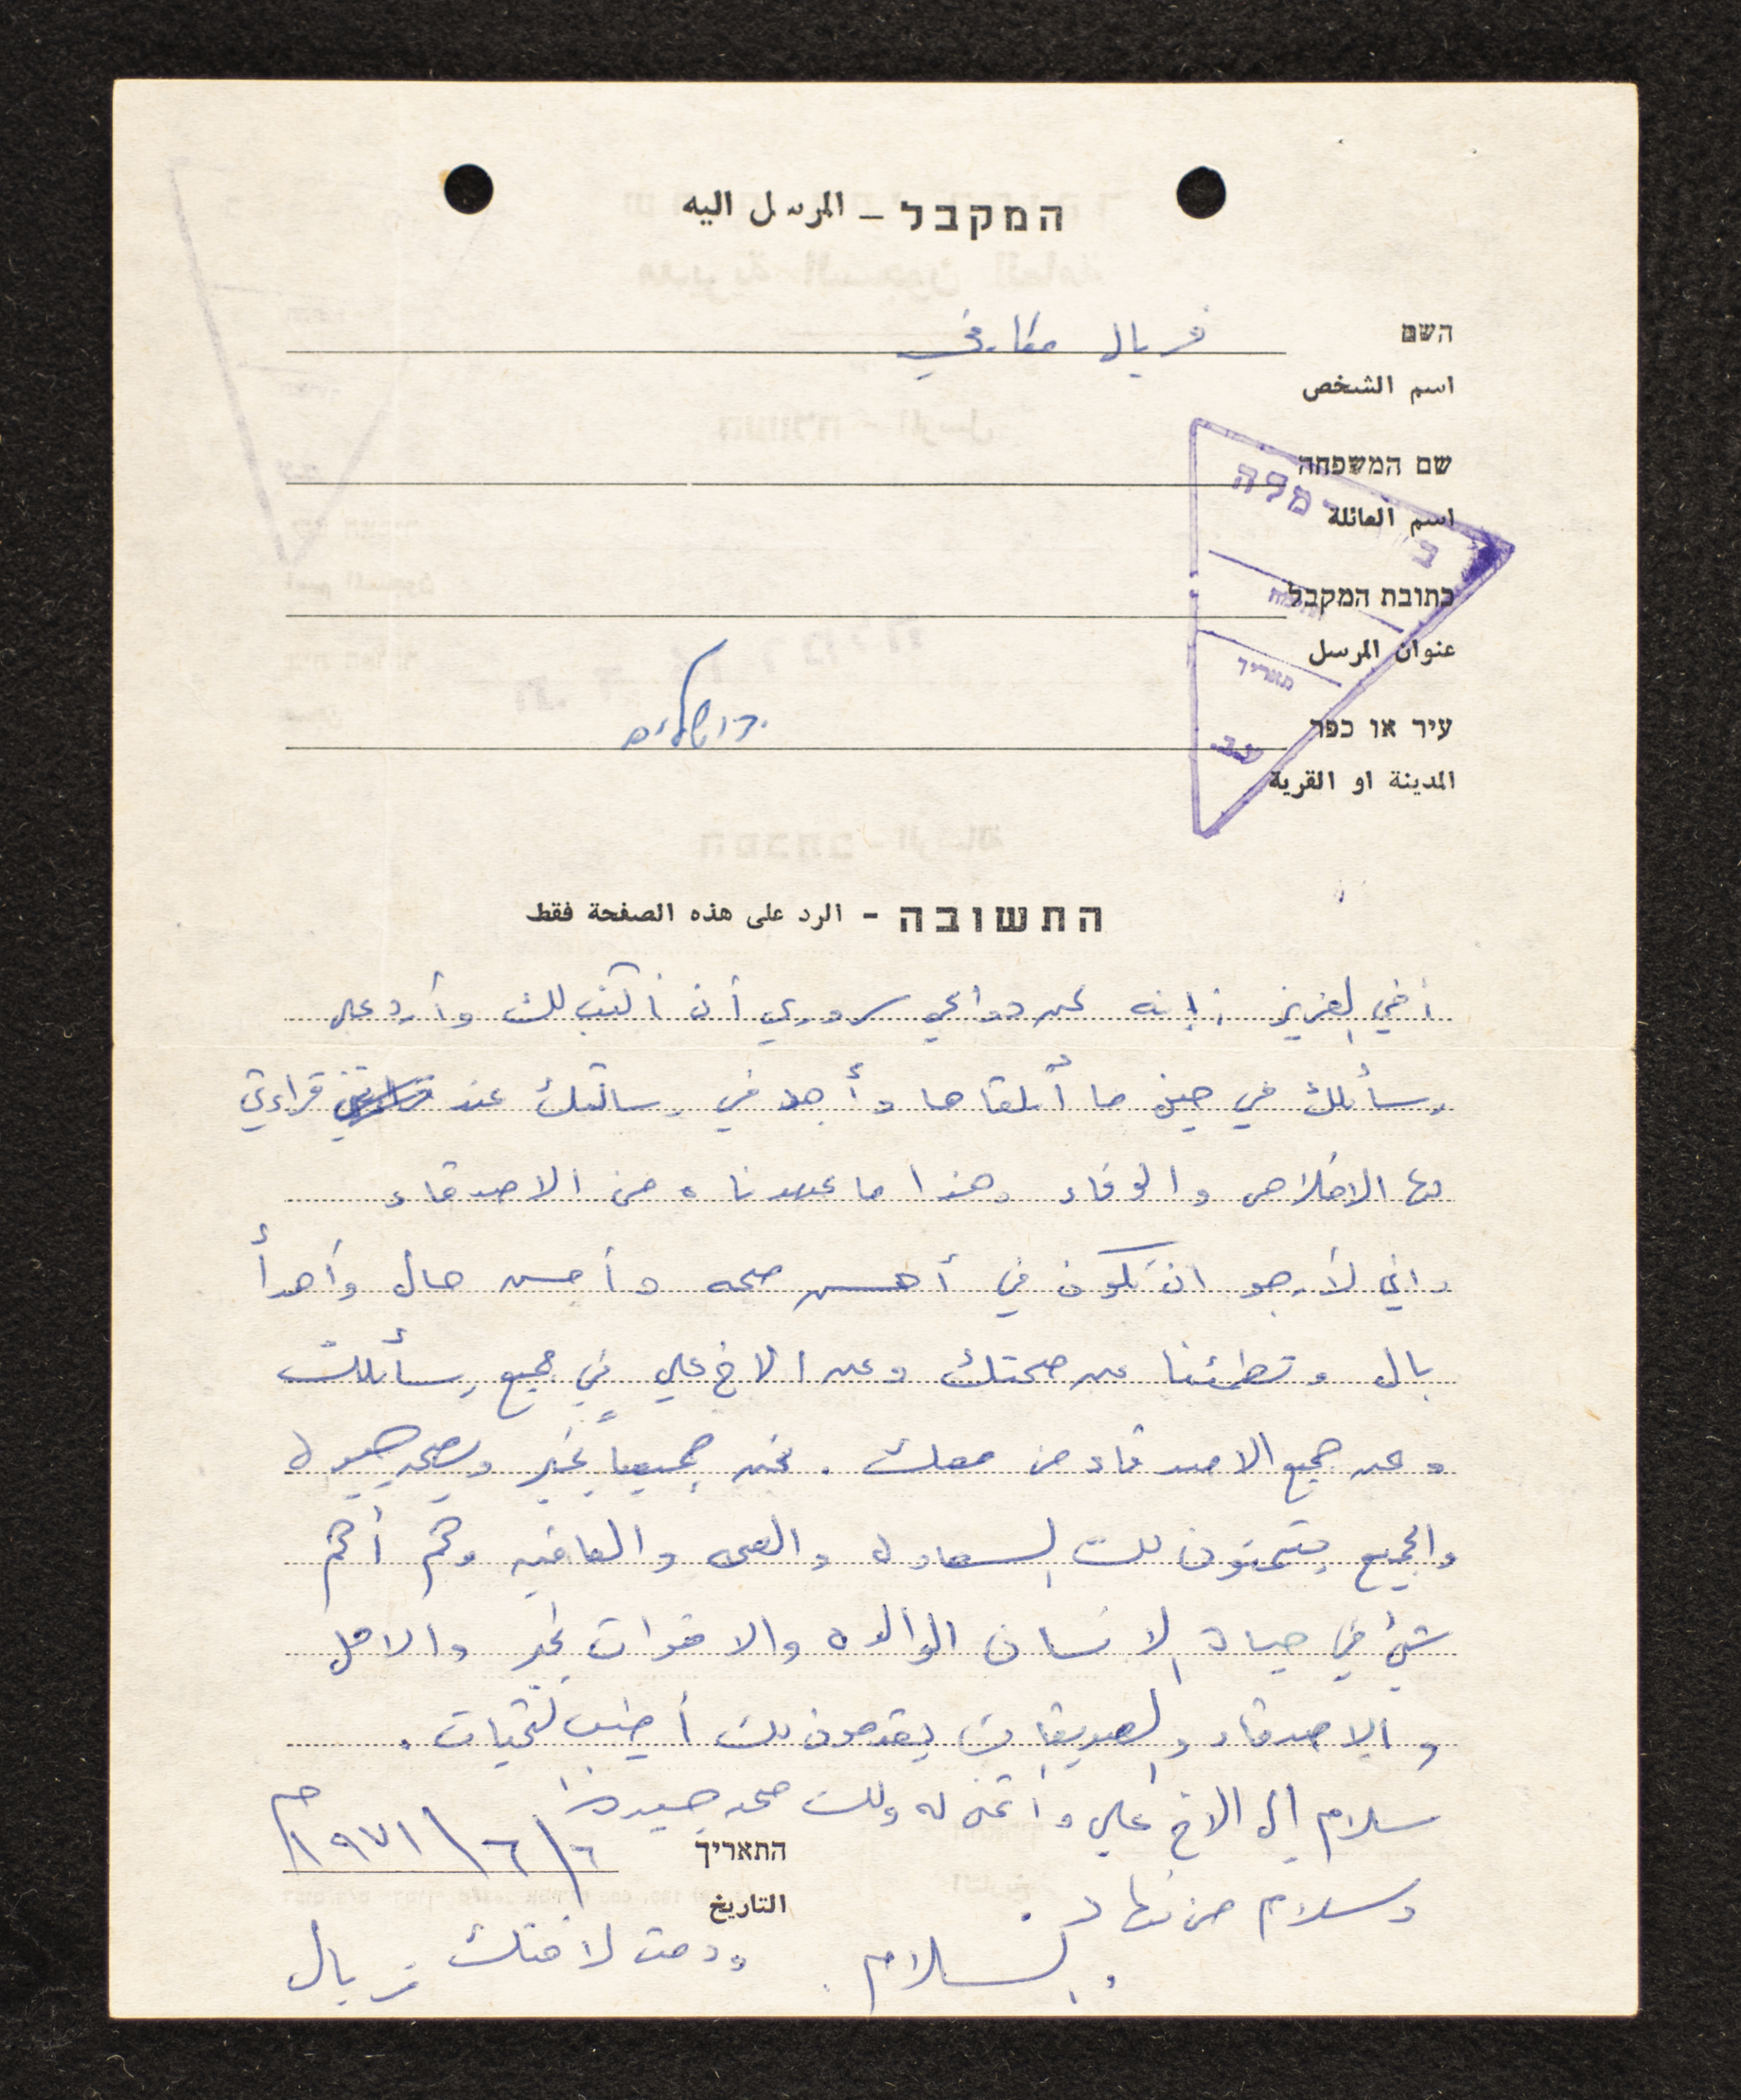 המקבל - المرسل اليه
השם
فريال
اسم الشخص
שם המשפחה
اسم العائلة
כתובת המקבל
عنوان المرسل
תאריך
ירושלים
עיר או כפר
المدينة او القرية
התשובה - الرد على هذه الصفحة فقط
أخي العزيز : إنه لمن دواعي سروري أن أكتب لك وأرد على
رسائلك في حين ما أتلقاها وأجد في رسالتك عند قراءتي
لها الاخلاص والوفاء وهذا ما عهدناه من الاصدقاء
واني لأرجو ان تكون في أحسن صحه وأحسن حال وأهدأ
بال وتطمئننا عن صحتك وعن الاخ علي في جميع رسائلك
وعن جميع الاصدقاء من معك . نحن جميعاً بخير وبصحه جيده
والجميع يتمنون لك السعاده والصحه والعافيه وهم أهم
شيئ في حياة الانسان الوالده والاخوات بخير والاهل
والاصدقاء والصديقات يقدمون لك أطيب التحيات .
سلام الى الاخ علي وأتمنى له ولك صحه جيده
התאריך ٦/٦/١٩٧١ م
التاريخ
وسلام من نهاد .
والسلام . ودمت لاختك فريال